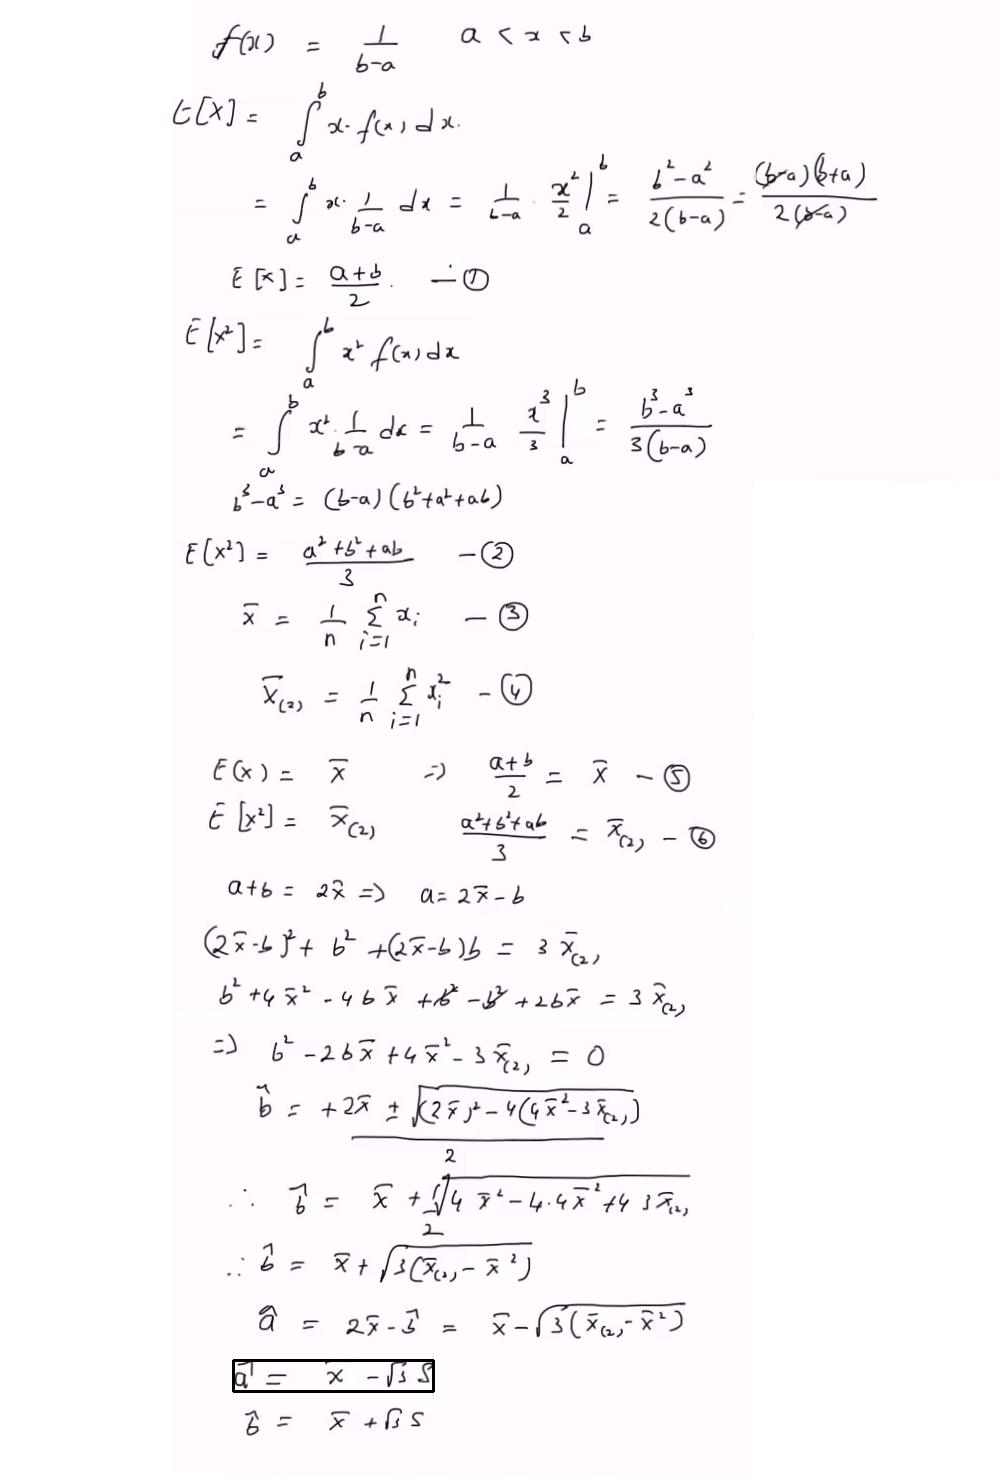 f(x) = 1/(b-a) a < x < b
E[X] = ∫_a^b x · f(x) dx.
= ∫_a^b x · 1/(b-a) dx = 1/(b-a) · x²/2 |_a^b = (b²-a²)/(2(b-a)) = (b-a)(b+a)/(2(b-a))
E[x] = (a+b)/2 . — ①
E[x²] = ∫_a^b x² f(x) dx
= ∫_a^b x² · 1/(b-a) dx = 1/(b-a) x³/3 |_a^b = (b³-a³)/(3(b-a))
b³-a³ = (b-a)(b²+a²+ab)
E[x²] = (a²+b²+ab)/3 — ②
x̄ = 1/n Σ_{i=1}^n x_i — ③
x̄_(2) = 1/n Σ_{i=1}^n x_i² — ④
E(x) = x̄ => (a+b)/2 = x̄ — ⑤
E[x²] = x̄_(2) (a²+b²+ab)/3 = x̄_(2) — ⑥
a+b = 2x̄ => a = 2x̄-b
(2x̄-b)² + b² + (2x̄-b)b = 3 x̄_(2)
b² + 4x̄² - 4bx̄ + b² - b² + 2bx̄ = 3 x̄_(2)
=> b² - 2bx̄ + 4x̄² - 3x̄_(2) = 0
b̂ = (+2x̄ ± √((2x̄)² - 4(4x̄² - 3x̄_(2))))/2
∴ b̂ = x̄ + √(4x̄² - 4·4x̄² + 4 3x̄_(2))/2
∴ b̂ = x̄ + √(3(x̄_(2) - x̄²))
â = 2x̄ - b̂ = x̄ - √(3(x̄_(2) - x̄²))
â = x̄ - √3 S
b̂ = x̄ + √3 S